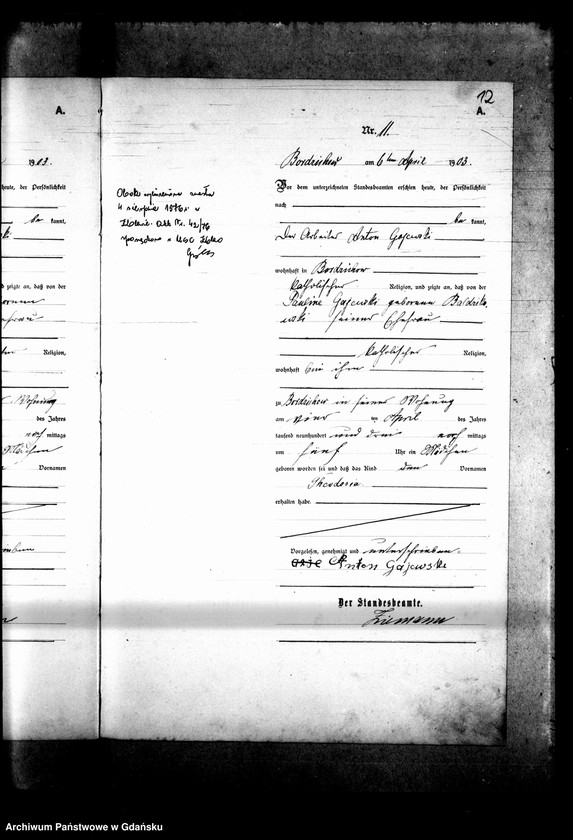 A.
1903.
heute, der Persönlichkeit
be kannt,
d zeigte an, daß von der
Religion,
Wohnung
des Jahres
nach mittags
Mädchen
Vornamen
12
A.
Nr. 11.
Bordzichow am 6ten April 1903.
Vor dem unterzeichneten Standesbeamten erschien heute, der Persönlichkeit
nach
be kannt,
Der Arbeiter Anton Gajewski
wohnhaft in Bordzichow
katholischer Religion, und zeigte an, daß von der
Pauline Gajewski geborenen
seiner Ehefrau
katholischer Religion,
wohnhaft bei ihm
zu Bordzichow in seiner Wohnung
am vier ten April des Jahres
tausend neunhundert und drei nach mittags
um fünf Uhr ein Mädchen
geboren worden sei und daß das Kind den Vornamen
Theodosia
erhalten habe.
Vorgelesen, genehmigt und unterschrieben.
Anton Gajewski
Der Standesbeamte.
Ziemann
Obok wymieniona zmarła
4 sierpnia 1976 r. w
Akt Nr. 42/76
sporządzono w USC
Archiwum Państwowe w Gdańsku